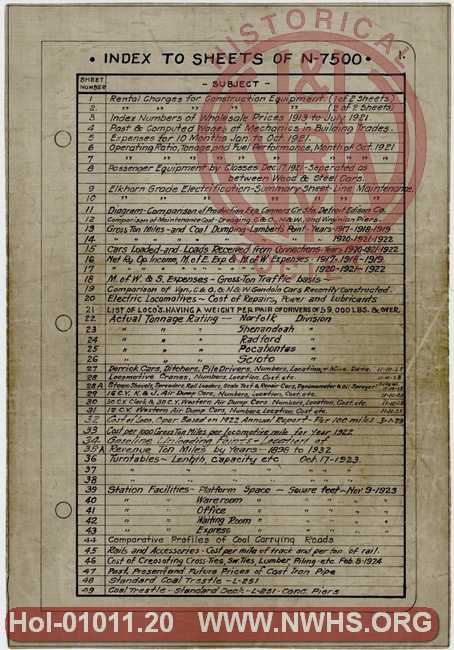 HISTORICAL
• INDEX TO SHEETS OF N-7500 •
SHEET NUMBER - SUBJECT -
1 Rental Charges for Construction Equipment (1 of 2 Sheets)
2 " " " " (2 of 2 Sheets)
3 Index Numbers of Wholesale Prices 1913 to July 1921
4 Past & Computed Wages of Mechanics in Building Trades.
5 Expenses for 10 Months Jan. to Oct. 1921
6 Operating Ratio, Tonnage and Fuel Performance, Month of Oct. 1921
7 " " " " " " " "
8 Passenger Equipment by Classes Dec. 17, 1921 - Seperated as
between Wood & Steel Cars.
9 Elkhorn Grade Electrification - Summary Sheet - Line Maintenance.
10 " " " " " "
11 Diagram - Comparison of Production Exp. Conners Cr. Sta. Detroit Edison Co.
12 Comparison of Maintenance Cost - Dredging C.& O., N.& W., and Virginian Piers.
13 Gross Ton Miles - and Coal Dumping - Lamberts Point - Years - 1917 - 1918 - 1919
14 " " " " " " " " 1920 - 1921 - 1922
15 Cars Loaded - and Loads Received from Connections - Years 1920 - 1921 - 1922
16 Net Ry. Op. Income, M. of E. Exp. & M. of W. Expenses - 1917 - 1918 - 1919.
17 " " " " " " " 1920 - 1921 - 1922
18 M. of W. & S. Expenses - Gross-Ton Traffic basis -
19 Comparison of Van., C.& O., & N.& W. Gondola Cars Recently Constructed.
20 Electric Locomotives - Cost of Repairs, Power and Lubricants
21 LIST OF LOCO'S. HAVING A WEIGHT PER PAIR OF DRIVERS OF 59,000 LBS. & OVER.
22 Actual Tonnage Rating - Norfolk Division
23 " " " Shenandoah "
24 " " " Radford "
25 " " " Pocahontas "
26 " " " Scioto "
27 Derrick Cars, Ditchers, Pile Drivers, Numbers, Location, & Nice Data.
28 Locomotive Cranes, Numbers, Location, Cost, etc.
28A Steam Shovels, Spreaders, Rail Loaders, Scale Test & Power Cars, Dynamometer & Oil Sprayer
29 16 C.Y. K.& J. Air Dump Cars, Numbers, Location, Cost, etc.
30 20 C.Y. Clark & 30 C.Y. Western Air Dump Cars, Numbers, Location, Cost, etc.
31 12 C.Y. Western Air Dump Cars, Numbers, Location, Cost, etc.
32 Cost of Loco. Oper. Based on 1922 Annual Report - Per 100 miles 3-1-23
33 Cost per 1000 Gross Ton Miles per locomotive mile for Year 1922
34 Gasoline Unloading Points - Location of
35A Revenue Ton Miles by Years - 1896 to 1932
36 Turntables - Length, Capacity etc. Oct. 17 - 1923.
37 " " " "
38 " " " "
39 Station Facilities - Platform Space - Square feet - Nov 9 - 1923
40 " " Wareroom " " " "
41 " " Office " " " "
42 " " Waiting Room " " " "
43 " " Express " " " "
44 Comparative Profiles of Coal Carrying Roads
45 Rails and Accessories - Cost per mile of track and per ton of rail.
46 Cost of Creosoting Cross-Ties, Sw. Ties, Lumber, Piling - etc. Feb. 8 - 1924
47 Past, Present and Future Prices of Cast Iron Pipe
48 Standard Coal Trestle - L-251
49 Coal Trestle - Standard Deck - L-251 - Conc. Piers
Hol-01011.20 WWW.NWHS.ORG